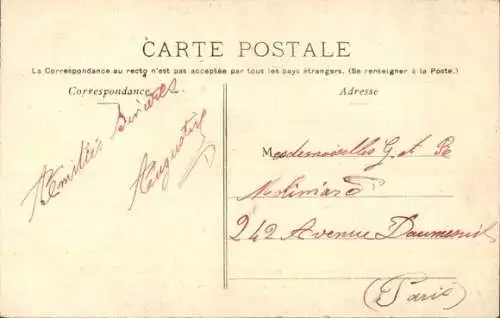 CARTE POSTALE
La Correspondance au recto n'est pas acceptée par tous les pays étrangers. (Se renseigner à la Poste.)
Correspondance
Amitiés Sincères
Augustine
Adresse
Mesdemoiselles G et
242 Avenue Daumesnil
(Paris)